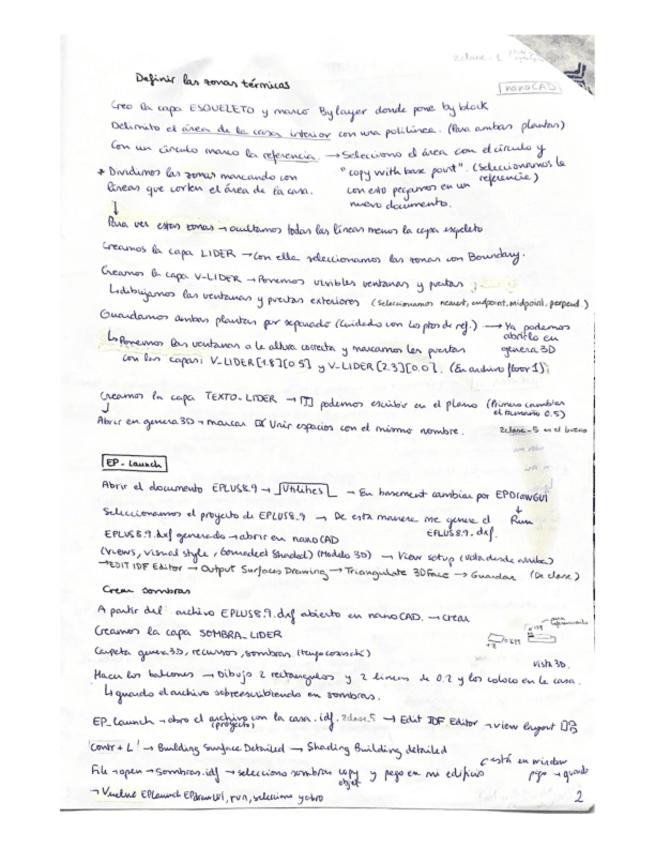 2clase - 1
Definir las zonas térmicas
nanoCAD
Creo la capa ESQUELETO y marco By layer donde pone by block
Delimito el área de la casa interior con una polilínea. (Para ambas plantas)
Con un círculo marco la referencia. → Selecciono el área con el círculo y
* Dividimos las zonas marcando con
líneas que corten el área de la casa.
"copy with base point". (Seleccionamos la
referencia)
con esto pegamos en un
nuevo documento.
↓
Para ver estas zonas → ocultamos todas las líneas menos la capa esqueleto
Creamos la capa LIDER → Con ella seleccionamos las zonas con Boundary.
Creamos la capa V-LIDER → Ponemos visibles ventanas y puertas
↳ dibujamos las ventanas y puertas exteriores (seleccionamos nearest, endpoint, midpoint, perpend.)
Guardamos ambas plantas por separado (Cuidado con los ptos de ref.) → Ya podemos
abrirlo en
genera 3D
↳ Ponemos las ventanas a la altura correcta y marcamos las puertas
con las capas: V-LIDER[1.8][0.5] y V-LIDER[2.3][0.0]. (En archivo floor 1)
Creamos la capa TEXTO-LIDER → podemos escribir en el plano (Primero cambiar
el tamaño 0.5)
↓
Abrir en genera 3D → marcar ☒ Unir espacios con el mismo nombre.
2clase-5 es el bueno
EP-Launch
Abrir el documento EPLUS8.9 → Utilities → En basement cambiar por EPDrawGUI
↓
Run
Seleccionamos el proyecto de EPLUS8.9 → De esta manera me genera el
EPLUS8.9.dxf.
EPLUS8.9.dxf generado → abrir en nanoCAD
(Views, visual style / Gouraded Shaded) (Modelo 3D) → View setup (vista desde arriba)
→ EDIT IDF Editor → Output Surfaces Drawing → Triangulate 3DFace → Guardar (De clase)
Crear sombras
A partir del archivo EPLUS8.9.dxf abierto en nanoCAD. → crear
Creamos la capa SOMBRA_LIDER
Carpeta genera3D, recursos, sombras
vista 3D.
Hacer los balcones → Dibujo 2 rectángulos y 2 líneas de 0.2 y los coloco en la casa.
↳ guardo el archivo sobreescribiendo en sombras.
EP_Launch → abro el archivo con la casa.idf. 2clase_5 → Edit IDF Editor → view layout
(proyecto)
'Contr + L' → Building Surface Detailed → Shading Building detailed
está en window
File → open → Sombras.idf → selecciono sombras copy y pego en mi edificio
objet
pego → guardo
→ Vuelvo EPLaunch EPdrawGUI, run, selecciono y abro
2